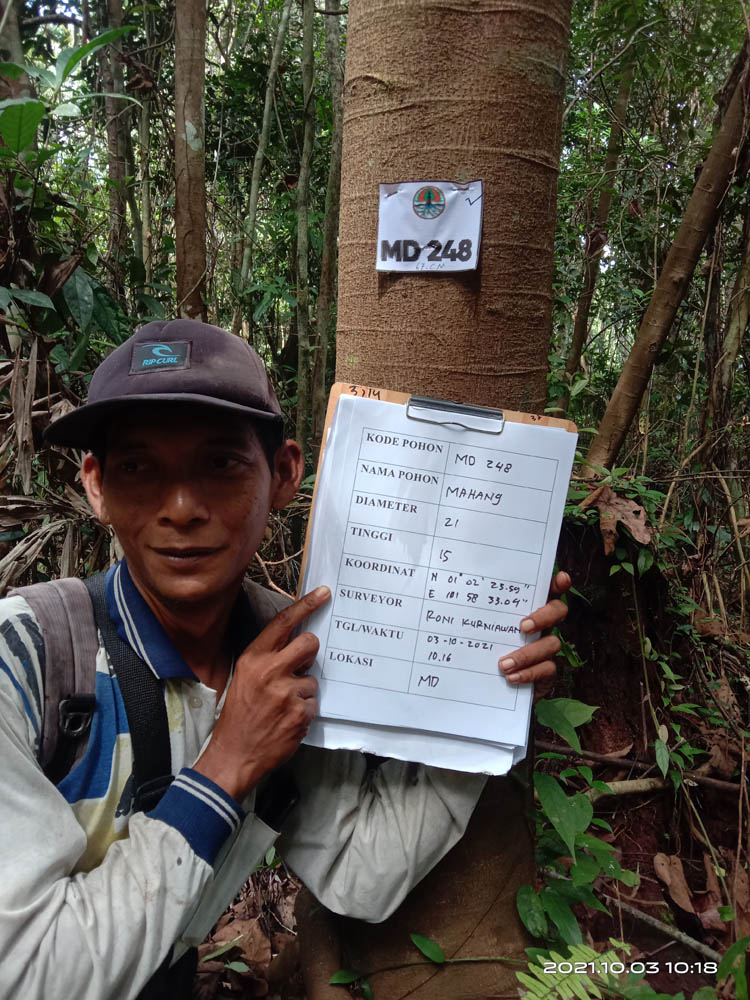 MD 248
67 CM
RIP CURL
KODE POHON MD 248
NAMA POHON MAHANG
DIAMETER 21
TINGGI 15
KOORDINAT N 01° 02' 23.59"
E 101 58 33.04"
SURVEYOR RONI KURNIAWAN
TGL/WAKTU 03-10-2021
10.16
LOKASI MD
2021.10.03 10:18